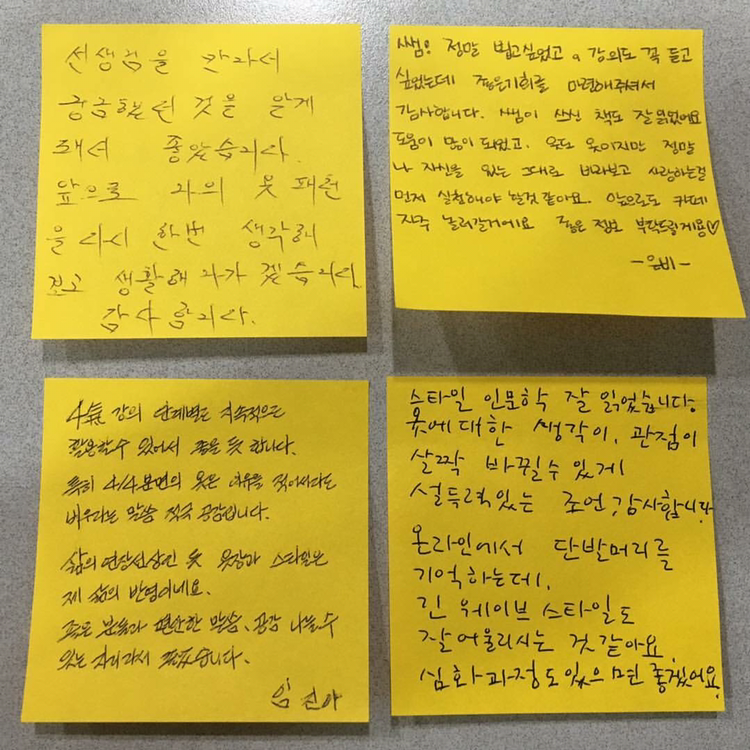 선생님을 만나서
궁금했던 것을 알게
돼서 좋았습니다.
앞으로 나의 옷 패션
을 다시 한번 생각해
보고 생활해 나가 겠습니다.
감사 합니다.
쌤! 정말 뵙고싶었고, 강의도 꼭 듣고
싶었는데 좋은기회를 마련해주셔서
감사합니다. 쌤이 쓰신 책도 잘 읽었어요
도움이 많이 되었고, 옷도 옷이지만 정말
나 자신을 있는 그대로 바라보고 사랑하는걸
먼저 실천해야 할것 같아요. 앞으로도 카페
자주 놀러갈거에요 좋은 정보 부탁드릴게용♡
-은비-
강의 단계별로 지속적으로
할 수 있어서 좋을 듯 합니다.
특히 4/4분면의 옷은 이유를 적어서라도
비우라는 말씀 적극 공감입니다.
삶의 연장선상인 옷 옷장과 스타일은
제 삶의 반영이네요.
좋은 분들과 편안한 말씀, 공감 나눌 수
있는 자리라서 좋습니다.
임
스타일 인문학 잘 읽었습니다
옷에대한 생각이, 관점이
살짝 바뀔수 있게
설득력있는 조언, 감사합니다
온라인에서 단발머리를
기억하는데,
긴 웨이브 스타일도
잘 어울리시는 것 같아요.
심화과정도 있으면 좋겠어요.